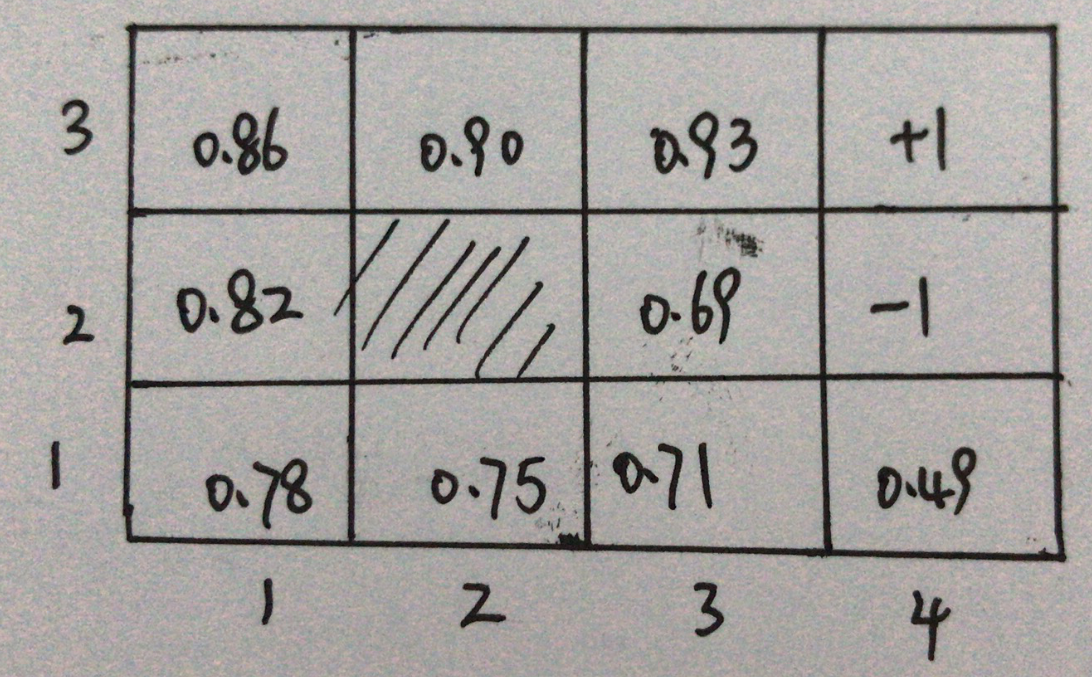 3 0.86 0.90 0.93 +1
2 0.82 0.69 -1
1 0.78 0.75 0.71 0.49
1 2 3 4